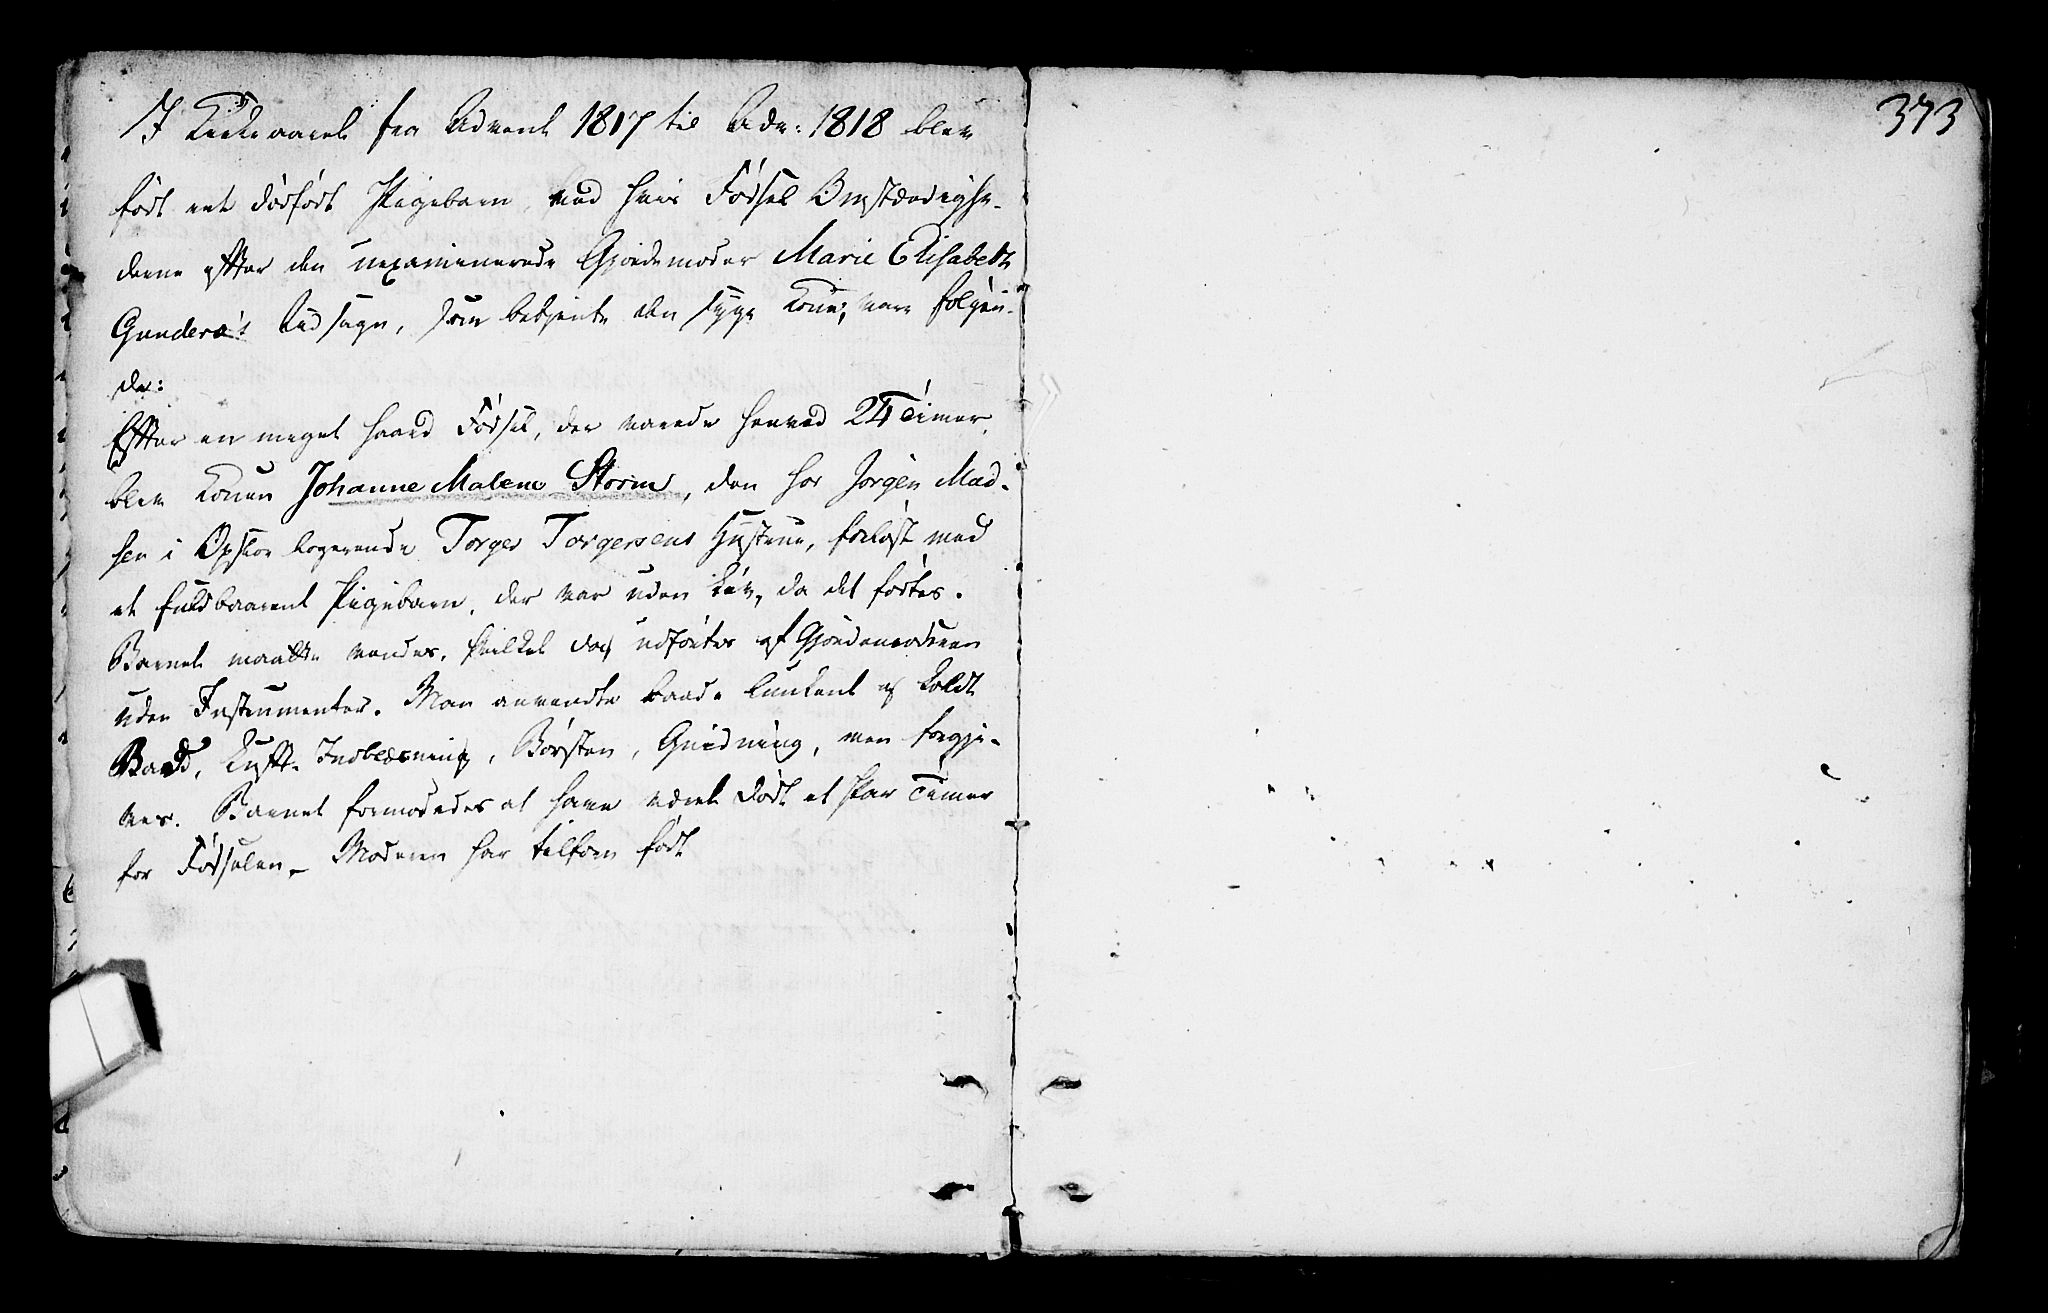 I Kirkeaaret fra Advent 1817 til Adv: 1818 blev
født eet dødfødt Pigebarn, ved hvis Fødsel Omstændighe-
derne efter den uexaminerede Gjordemoder Marie Elisabeth
Gunderø's Udsagn, som betjente den syge Kone, vare følgen-
de:
Efter en meget haard Fødsel, der varede henved 24 Timer,
blev Konen Johanne Malene Storm, den hos Jørgen Mad-
sen i Opsior logerende Torger Torgersens Hustrue, forløst med
et fuldbaarent Pigebarn, der var uden Liv, da det fødtes.
Barnet maatte vendes, hvilket dog udførtes af Gjordemoderen
uden Instrumenter. Man anvendte baade lunkent og koldt
Bad, Luft-Indblæsning, Børsten, Gnidning, men forgje-
ves. Barnet formodedes at have været dødt et Par Timer
før Fødselen. Moderen har tilforn født
373